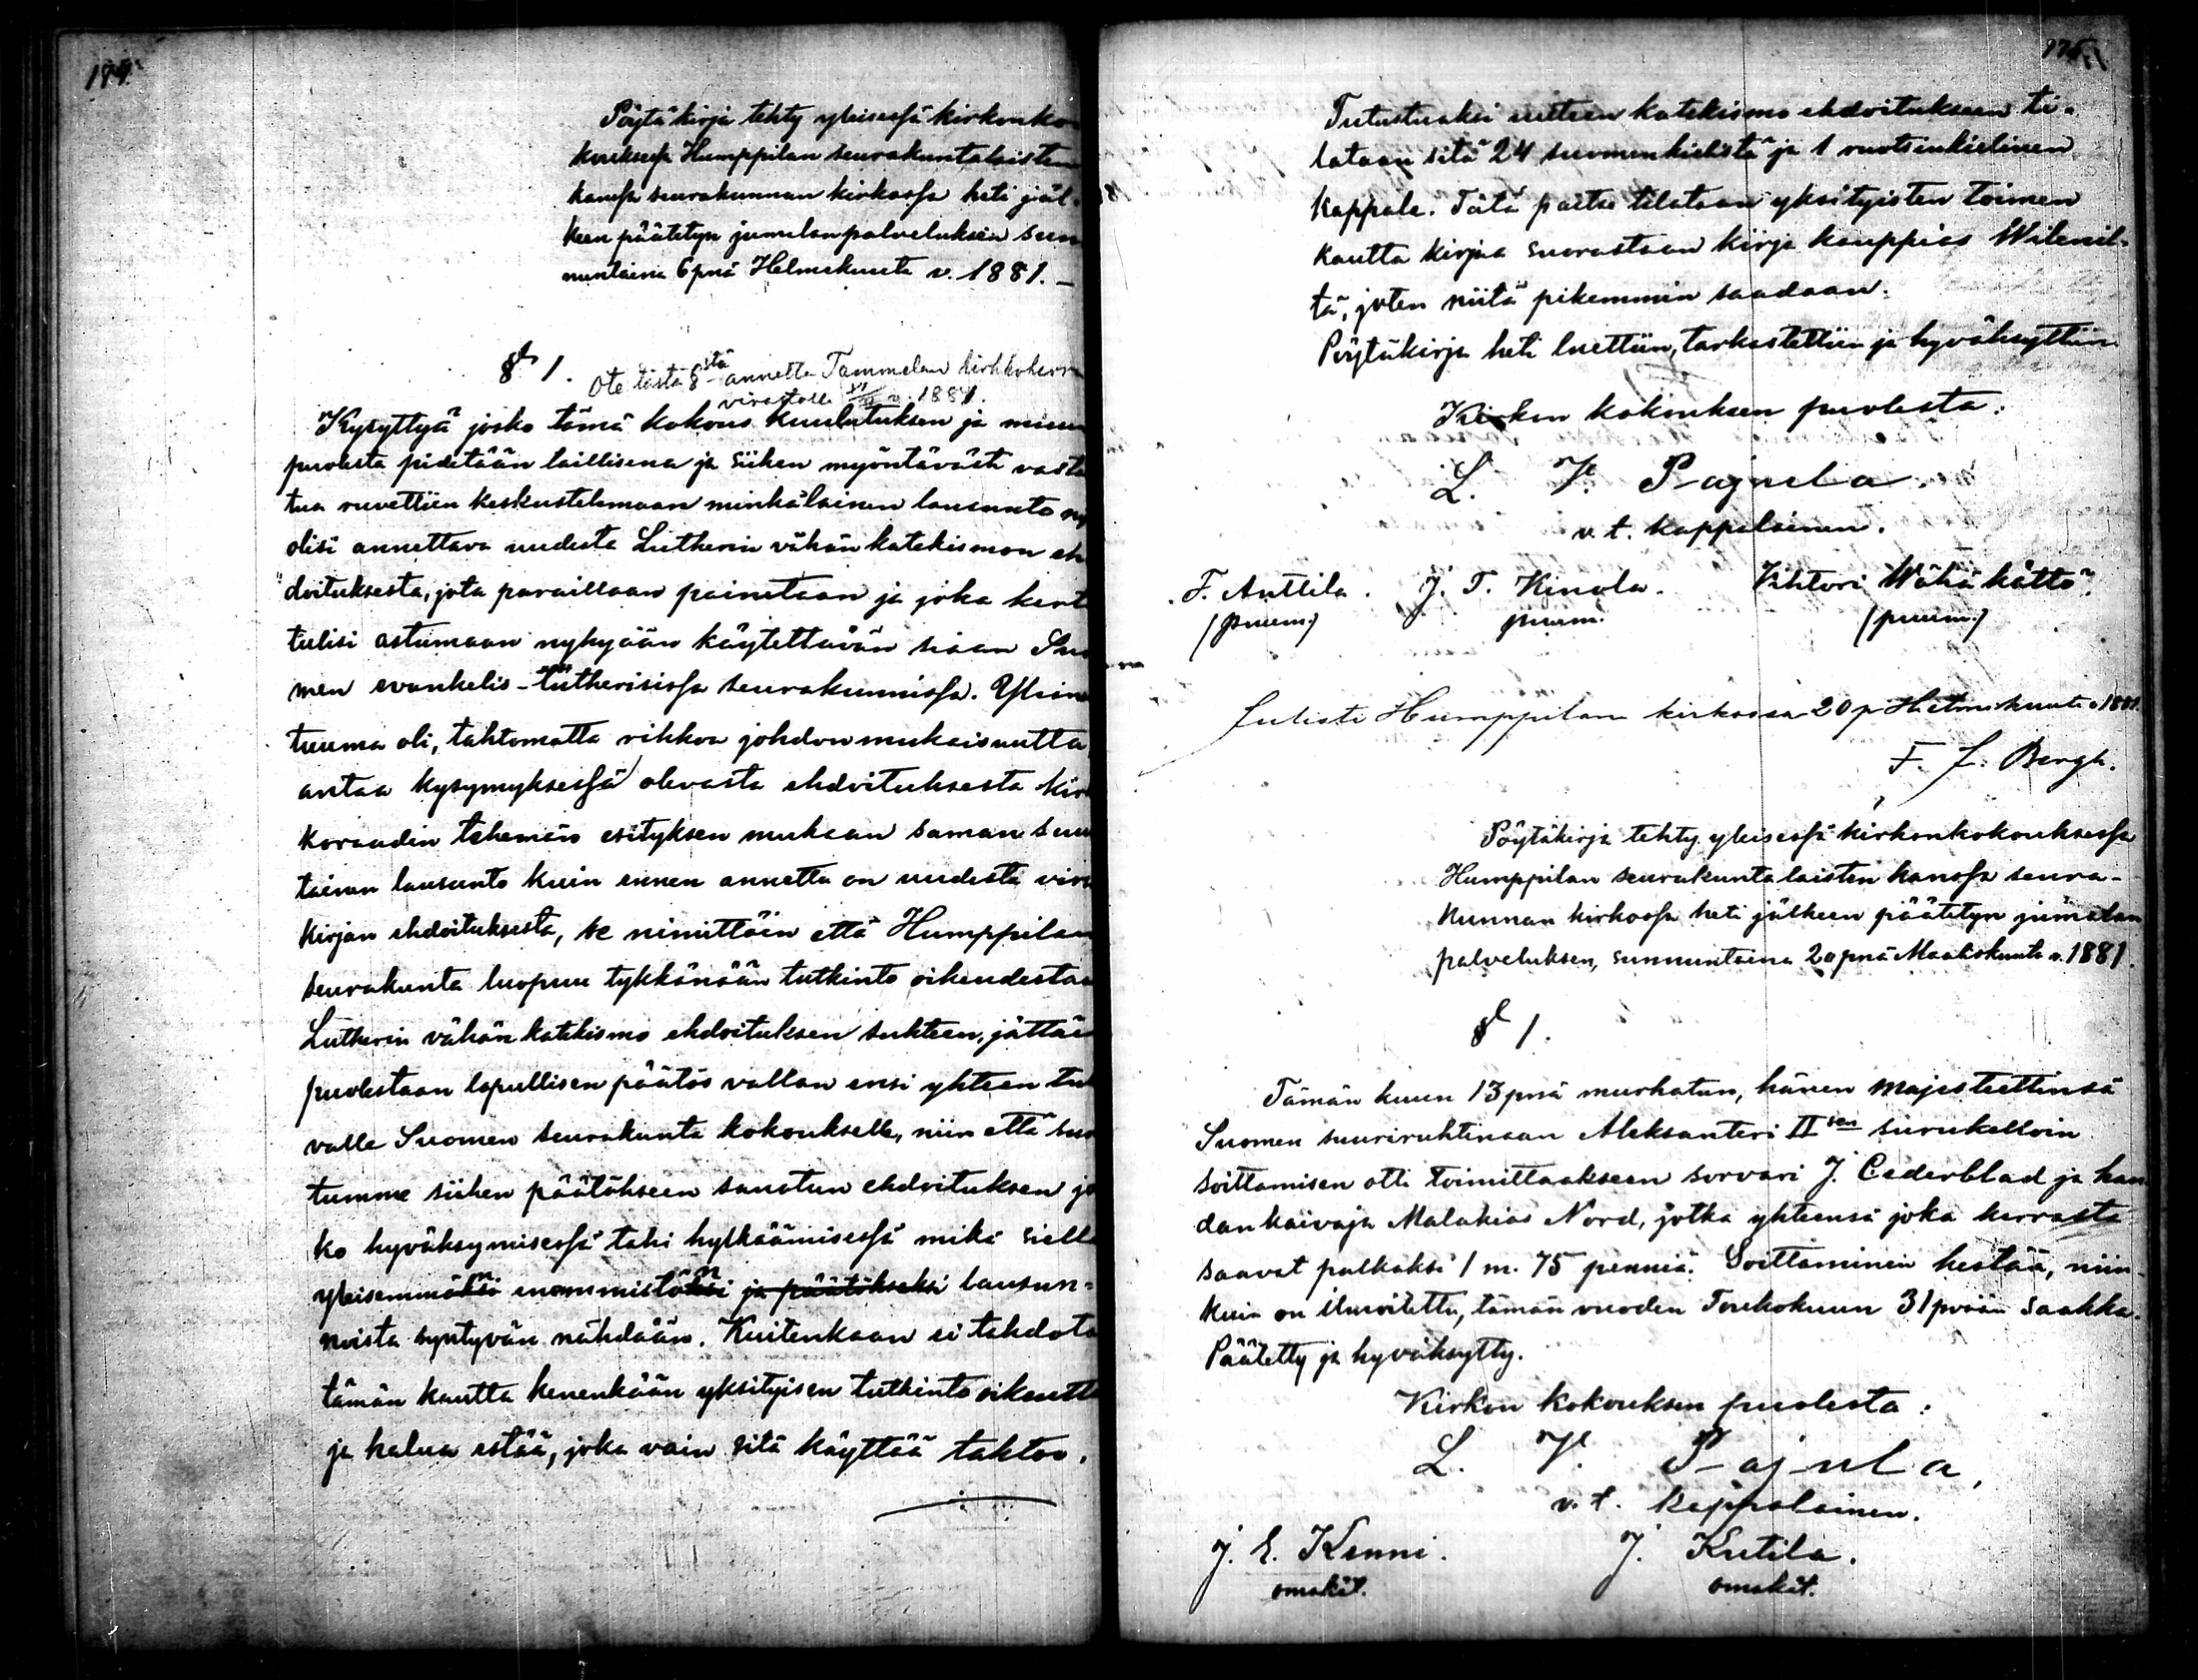 Pöytäkirja tehty yleisessä kirkonko
kouksessa Humppilan seurakuntalaisten
kanssa seurakunnan kirkossa heti jäl-
keen päätetyn jumalanpalveluksen sun
nuntaina 6 pnä Helmikuuta v. 1881. –
§ 1. Ote tästä § stä annettu Tammelan kirkkoherra
virastolle 1881.
Kysyttyä josko tämä kokous kuulutuksen ja muun
puolesta pidetään laillisena ja siihen myöntävästi vasta
tua ruvettiin keskustelemaan minkälainen lausunto ny
olisi annettava uudesta Lutherin vähän katekismon eh
doituksesta, jota paraillaan painetaan ja joka kert
tulisi astumaan nykyään käytettävän siaan Suo
men evankelis-lutherisissa seurakunnissa. Ylein
tuuma oli, tahtomatta rikkoa johdonmukaisuutta,
antaa kysymyksessä olevasta ehdoituksesta kirk
koraadin tekemän esityksen mukaan saman suun
tainen lausunto kuin ennen annettu on uudesta virsi
kirjan ehdoituksesta, se nimittäin että Humppilan
seurakunta luopuu tykkänään tutkinto oikeudestaa
Lutherin vähän katekismo ehdoituksen suhteen, jättäe
puolestaan lopullisen päätös vallan ensi yhteen tul
valle Suomen seurakunta kokoukselle, niin että suos
tumme siihen päätökseen sanotun ehdoituksen jo
ko hyväksymisessä tahi hylkäämisessä mikä siellä
yleisemmän enemmistön ja päätökseksi lausun-
noista syntyvän nähdään. Kuitenkaan ei tahdota
tämän kautta kenenkään yksityisen tutkinto oikeutta
ja halua estää, joka vain sitä käyttää tahtoo.
Tutustuaksi uuteen katekismo ehdoitukseen ti-
lataan sitä 24 suomenkielistä ja 1 ruotsinkielinen
kappale. Tätä paitse tilataan yksityisten toimen
kautta kirjaa suorastaan kirja kauppias Wilenil-
tä, joten niitä pikemmin saadaan.
Pöytäkirja heti luettiin, tarkastettiin ja hyväksyttiin.
Kirkon kokouksen puolesta:
L. V. Pajula.
v. t. kappalainen.
F. Anttila. J. T. Kinola. Vihtori Wähä kättö.
(puum.) puum. (puum.)
Julisti Humppilan kirkossa 20 p Helmikuuta 1881.
F. J. Bergh.
Pöytäkirja tehty yleisessä kirkonkokouksessa
Humppilan seurakuntalaisten kanssa seura-
kunnan kirkossa heti jälkeen päätetyn jumalan
palveluksen, sunnuntaina 20 pnä Maaliskuuta v. 1881.
§ 1.
Tämän kuun 13 pnä murhatun, hänen majesteettinsä
Suomen suuriruhtinaan Aleksanteri II sen surukelloin
soittamisen otti toimittaakseen sorvari J. Cederblad ja hau
dankaivaja Malakias Nord, jotka yhteensä joka kerrasta
saavat palkaksi 1 m. 75 penniä. Soittaminen kestää, niin-
kuin on ilmoitettu, tämän vuoden Toukokuun 31 pvään saakka.
Päätetty ja hyväksytty.
Kirkon kokouksen puolesta:
L. V. Pajula,
v. t. kappalainen.
J. E. Kenni. J. Kutila.
omakät. omakät.